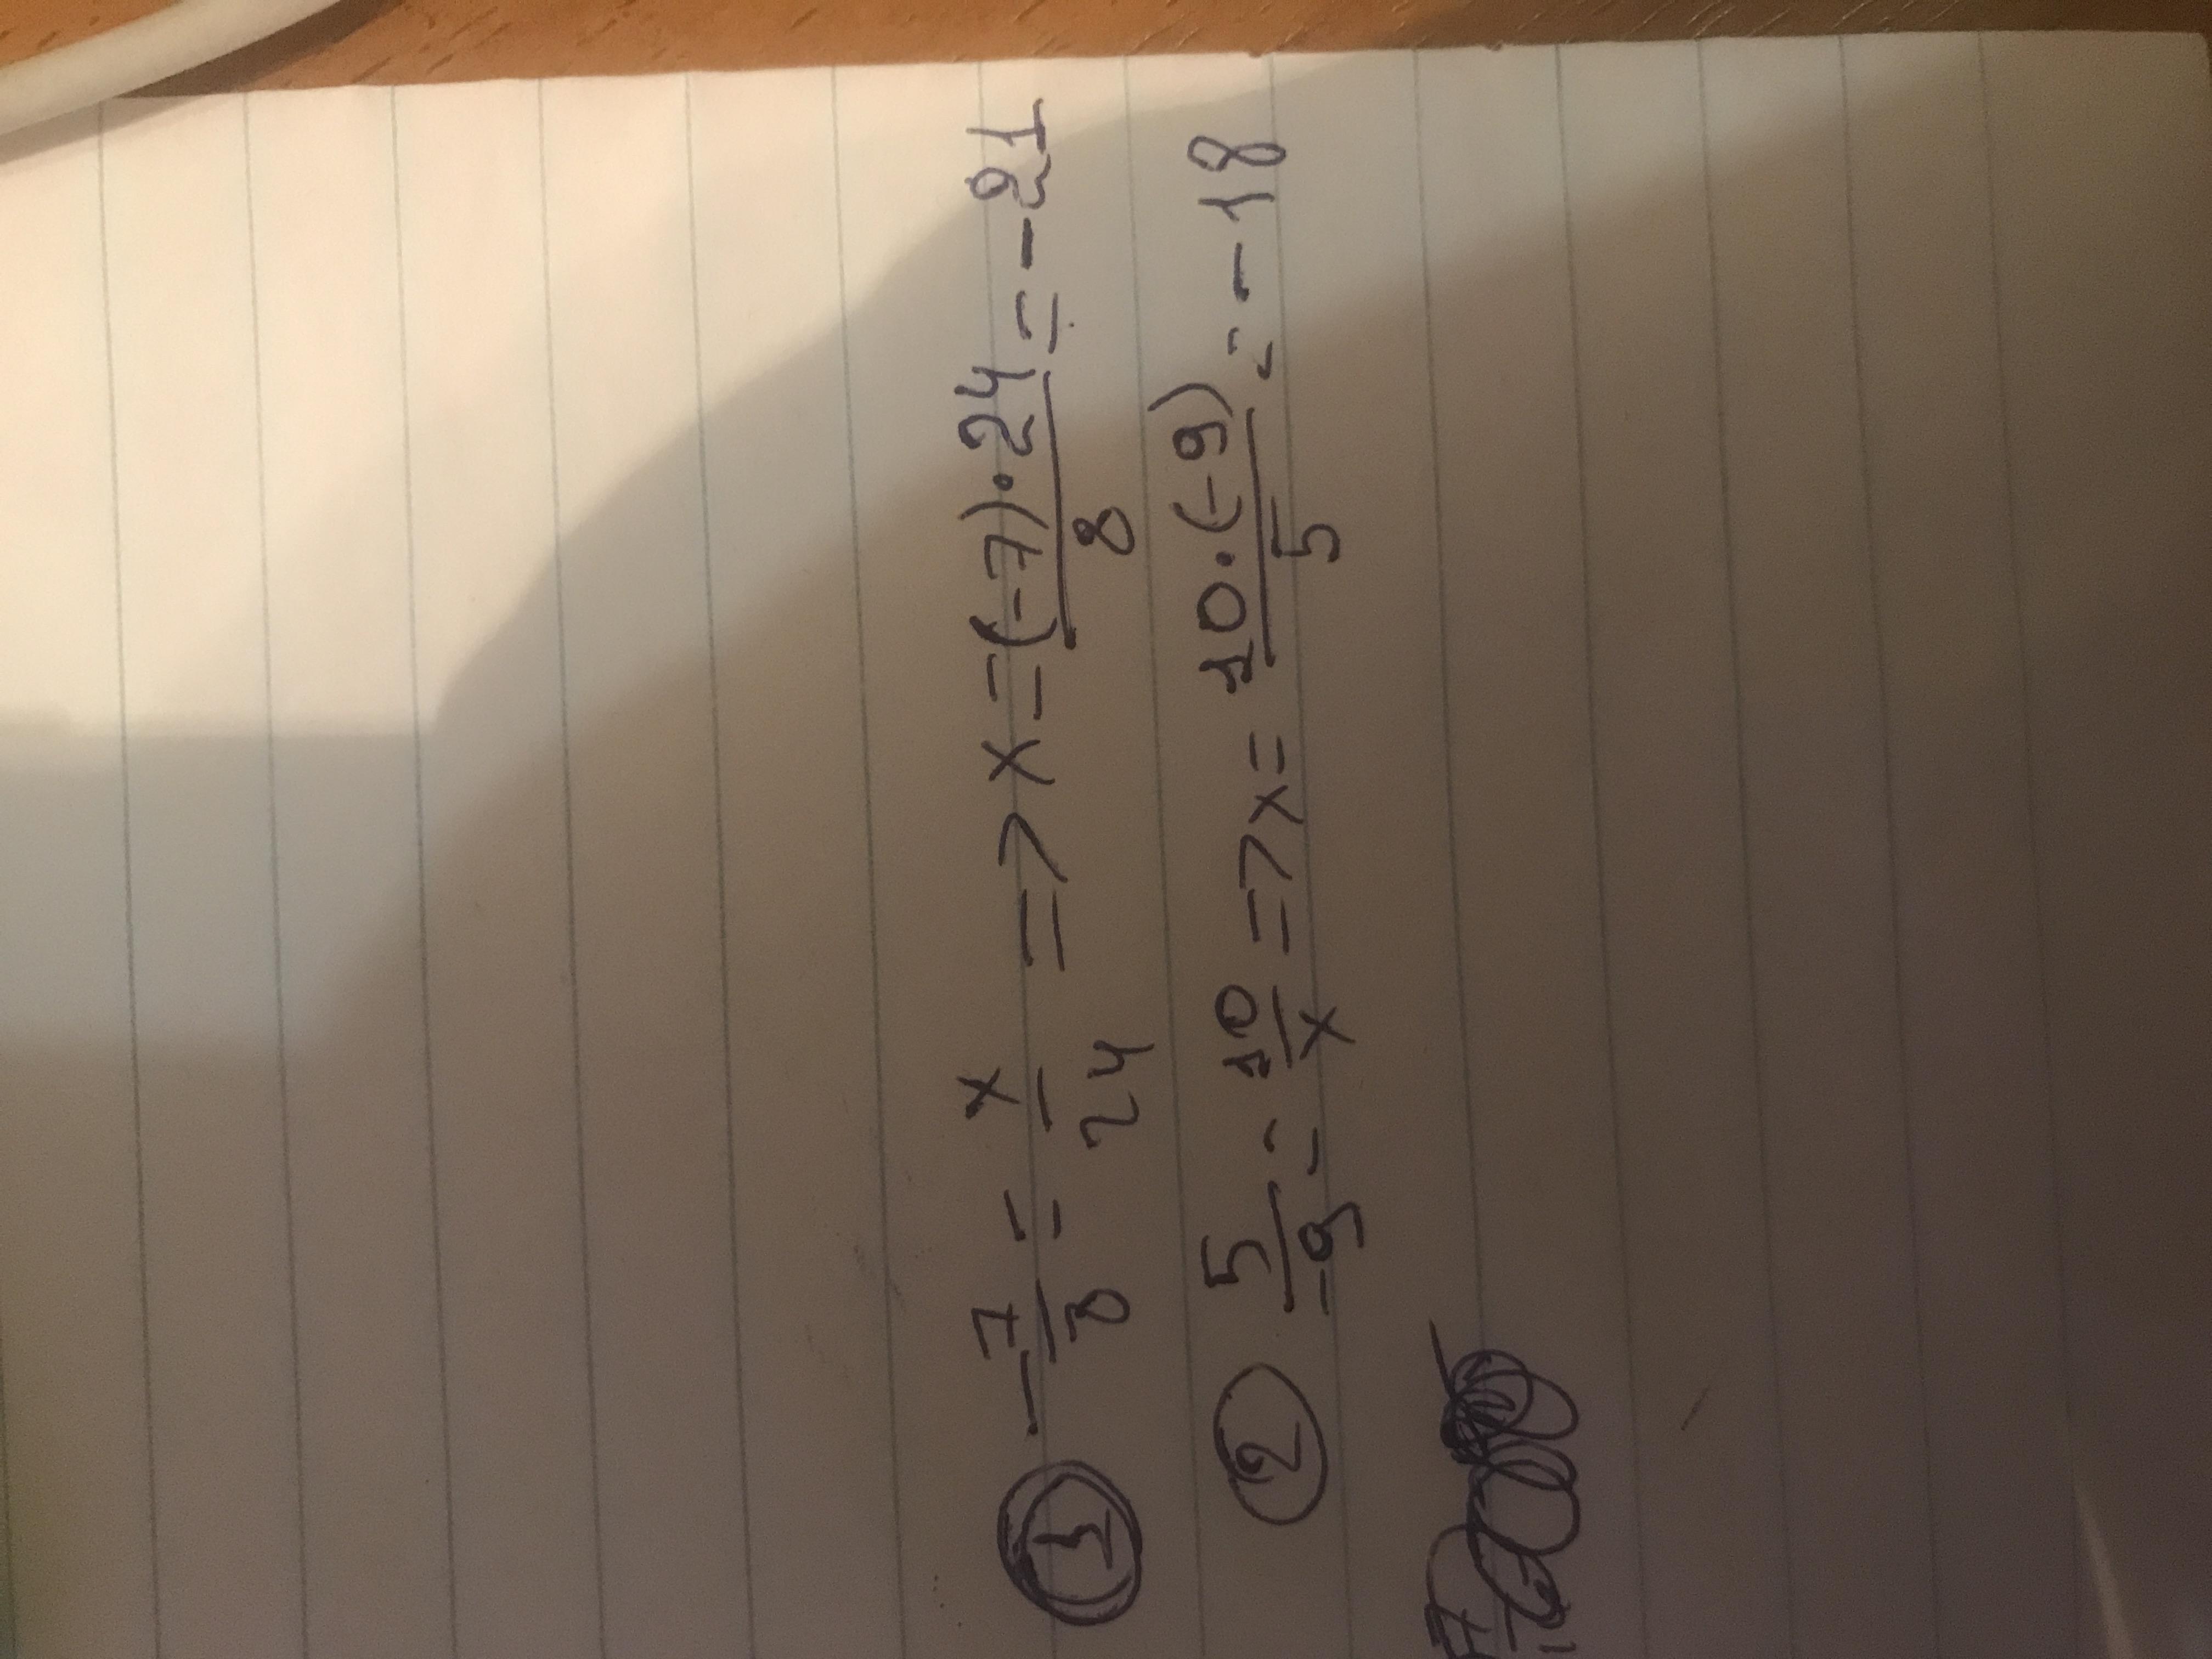 ① -7/8 = x/24 => x = (-7)·24/8 = -21
② 5/-9 = 10/x => x = 10·(-9)/5 = -18